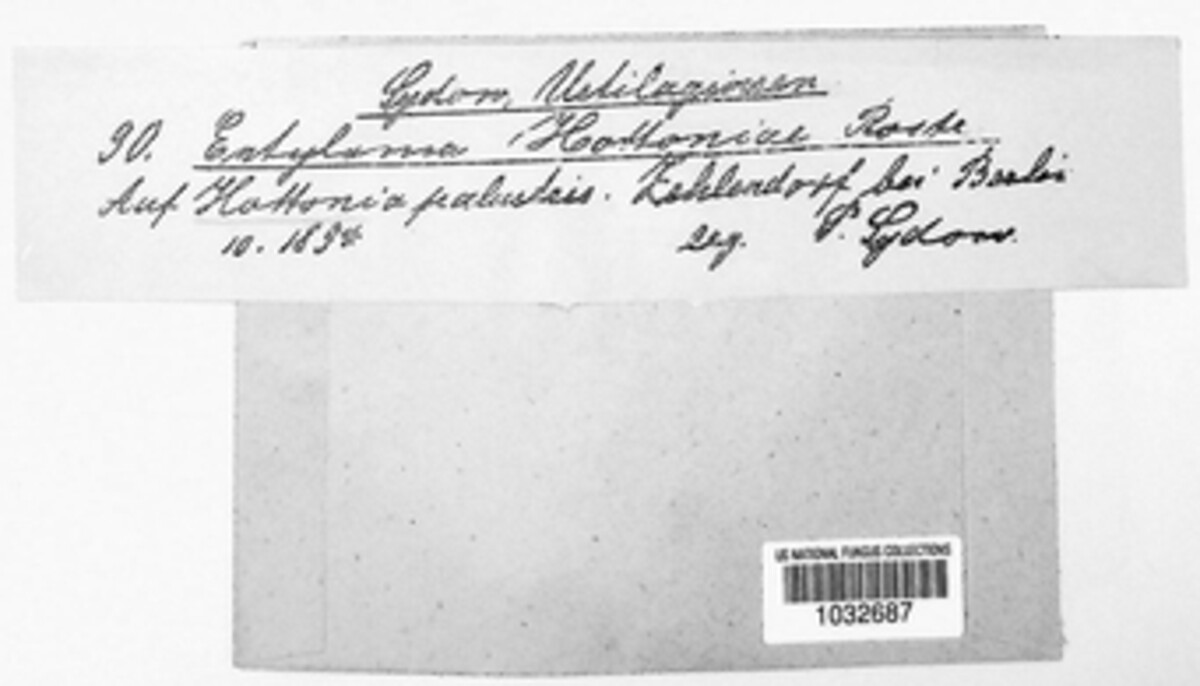 Sydow, Ustilagineen
30. Entyloma Hottoniae Rostr.
Auf Hottonia palustris. Zehlendorf bei Berlin
10. 189
leg. P. Sydow.
US NATIONAL FUNGUS COLLECTIONS
1032687